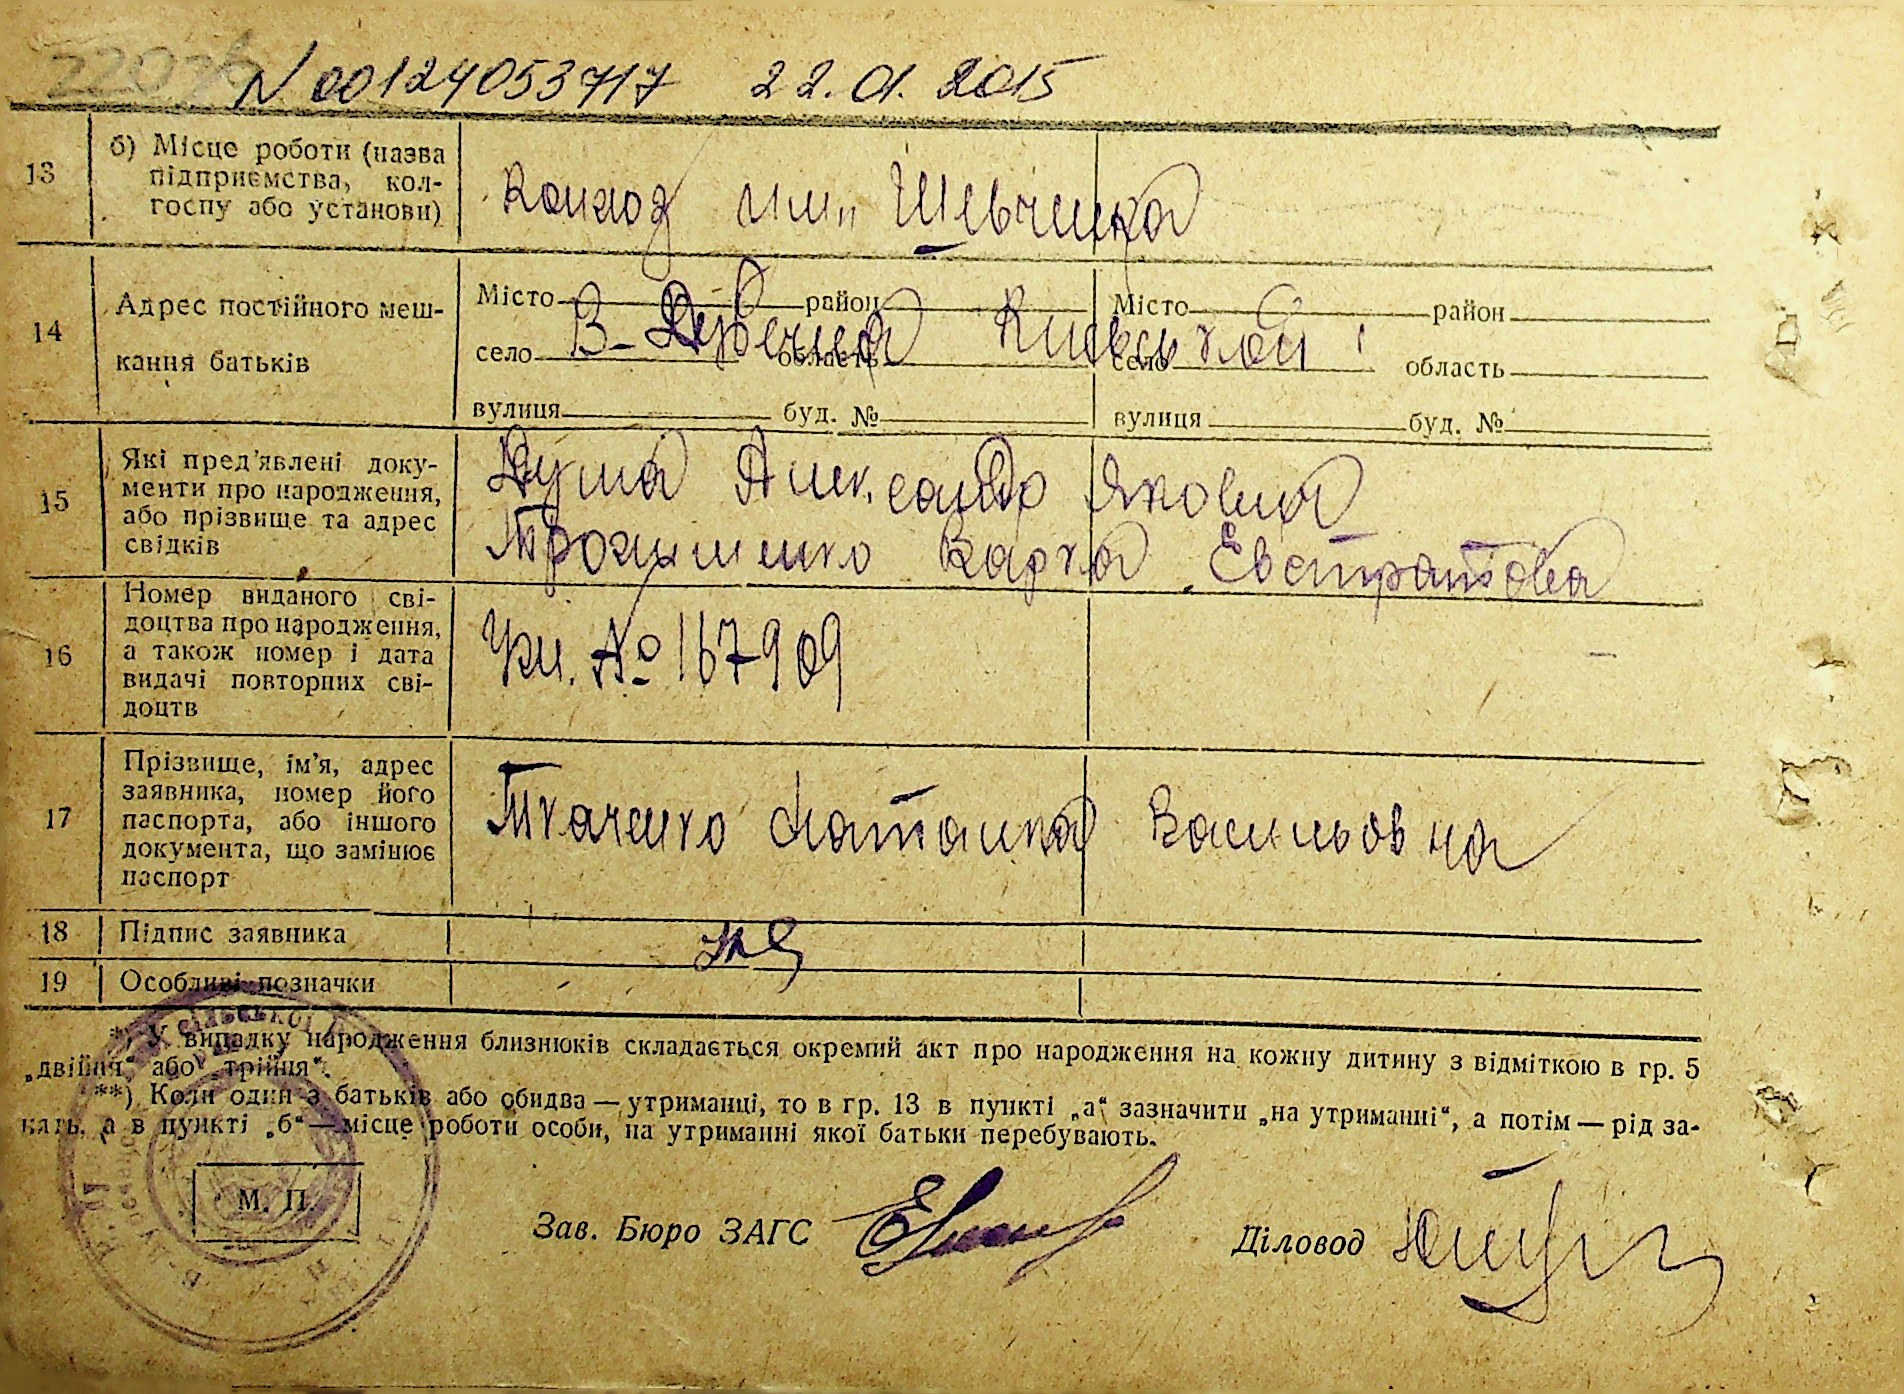 N 00124053717 22.01.2015
13
б) Місце роботи (назва
підприємства, кол-
госпу або установи)
Колхоз им. Шевченка
14
Адрес постійного меш-
кання батьків
Місто район
село область
вулиця буд. №
Місто район
село область
вулиця буд. №
В-Дубечня Киевской
15
Які пред'явлені доку-
менти про народження,
або прізвище та адрес
свідків
Александ Яковна
Варка Евстратовна
16
Номер виданого сві-
доцтва про народження,
а також номер і дата
видачі повторних сві-
доцтв
№ 167909
17
Прізвище, ім'я, адрес
заявника, номер його
паспорта, або іншого
документа, що замінює
паспорт
Ткаченко Наталка Васильовна
18
Підпис заявника
19
Особливі позначки
*) У випадку народження близнюків складається окремий акт про народження на кожну дитину з відміткою в гр. 5
„двійня" або „трійня".
**) Коли один з батьків або обидва — утриманці, то в гр. 13 в пункті „а" зазначити „на утриманні", а потім — рід за-
нять, а в пункті „б" — місце роботи особи, на утриманні якої батьки перебувають.
М. П.
Зав. Бюро ЗАГС
Діловод